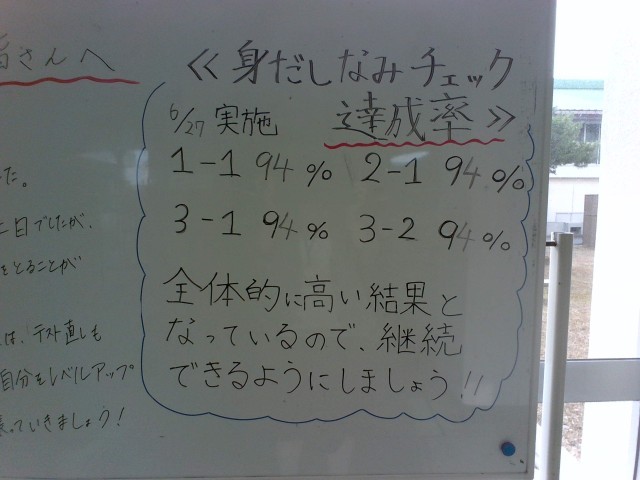 さんへ
た。
目でしたが、
をとることが
は、テスト直しも
自分をレベルアップ
っていきましょう!
≪身だしなみチェック
達成率≫
6/27 実施
1-1 94% 2-1 94%
3-1 94% 3-2 94%
全体的に高い結果と
なっているので、継続
できるようにしましょう!!